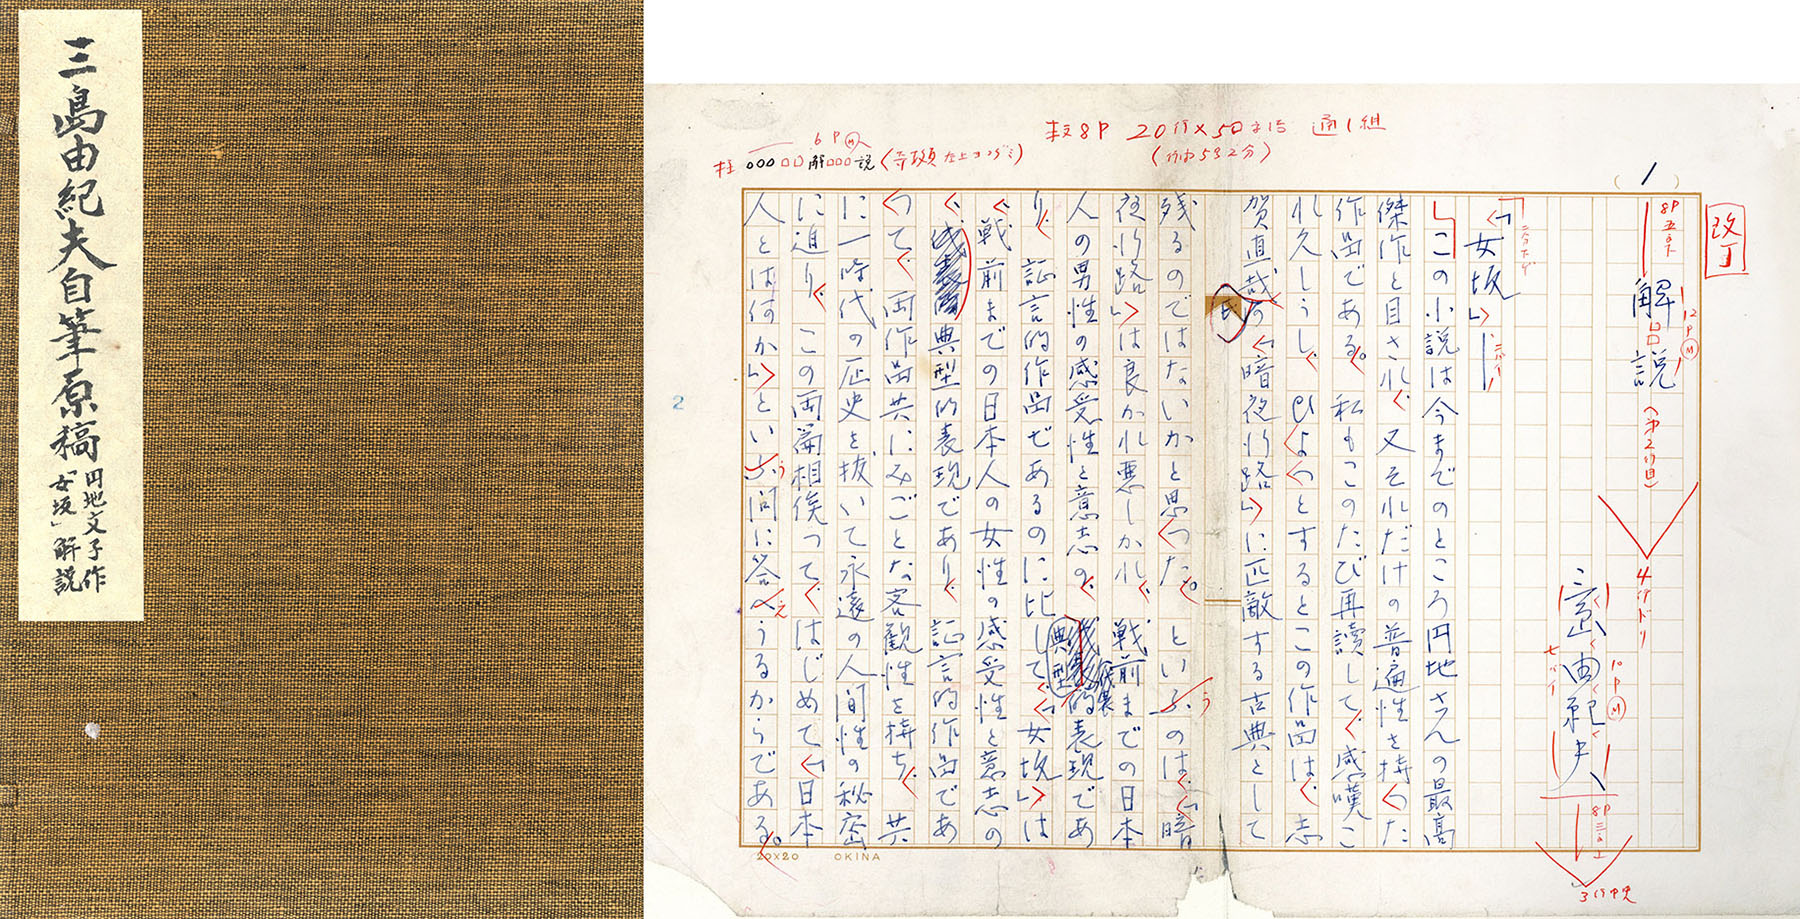 三島由紀夫自筆原稿
円地文子作
「女坂」解説
本文8P 20行×50字詰 通し組
(行内532分)
6P
柱 000 解 説
(1)
改丁
8P
解説
12P
(第2の目)
4行ドリ
三島由紀夫
10P
8P
3行中見
「女坂」
この小説は今までのところ円地さんの最高
傑作と目され、又それだけの普遍性を持つた
作品である。私もこのたび再讀して、感嘆こ
れ久しうし、ひよつとするとこの作品は、志
賀直哉氏の「暗夜行路」に匹敵する古典として
残るのではないかと思つた。といふのは、「暗
夜行路」は良かれ悪しかれ、戦前までの日本
人の男性の感受性と意志の、典型的表現であ
り、証言的作品であるのに比して、「女坂」は
、戦前までの日本人の女性の感受性と意志の
、典型的表現であり、証言的作品であ
つて、両作品共にみごとな客観性を持ち、共
に一時代の歴史を抜いて永遠の人間性の秘密
に迫り、この両篇相俟つて、はじめて「日本
人とは何か」といふ問に答へうるからである。
20×20 OKINA
2